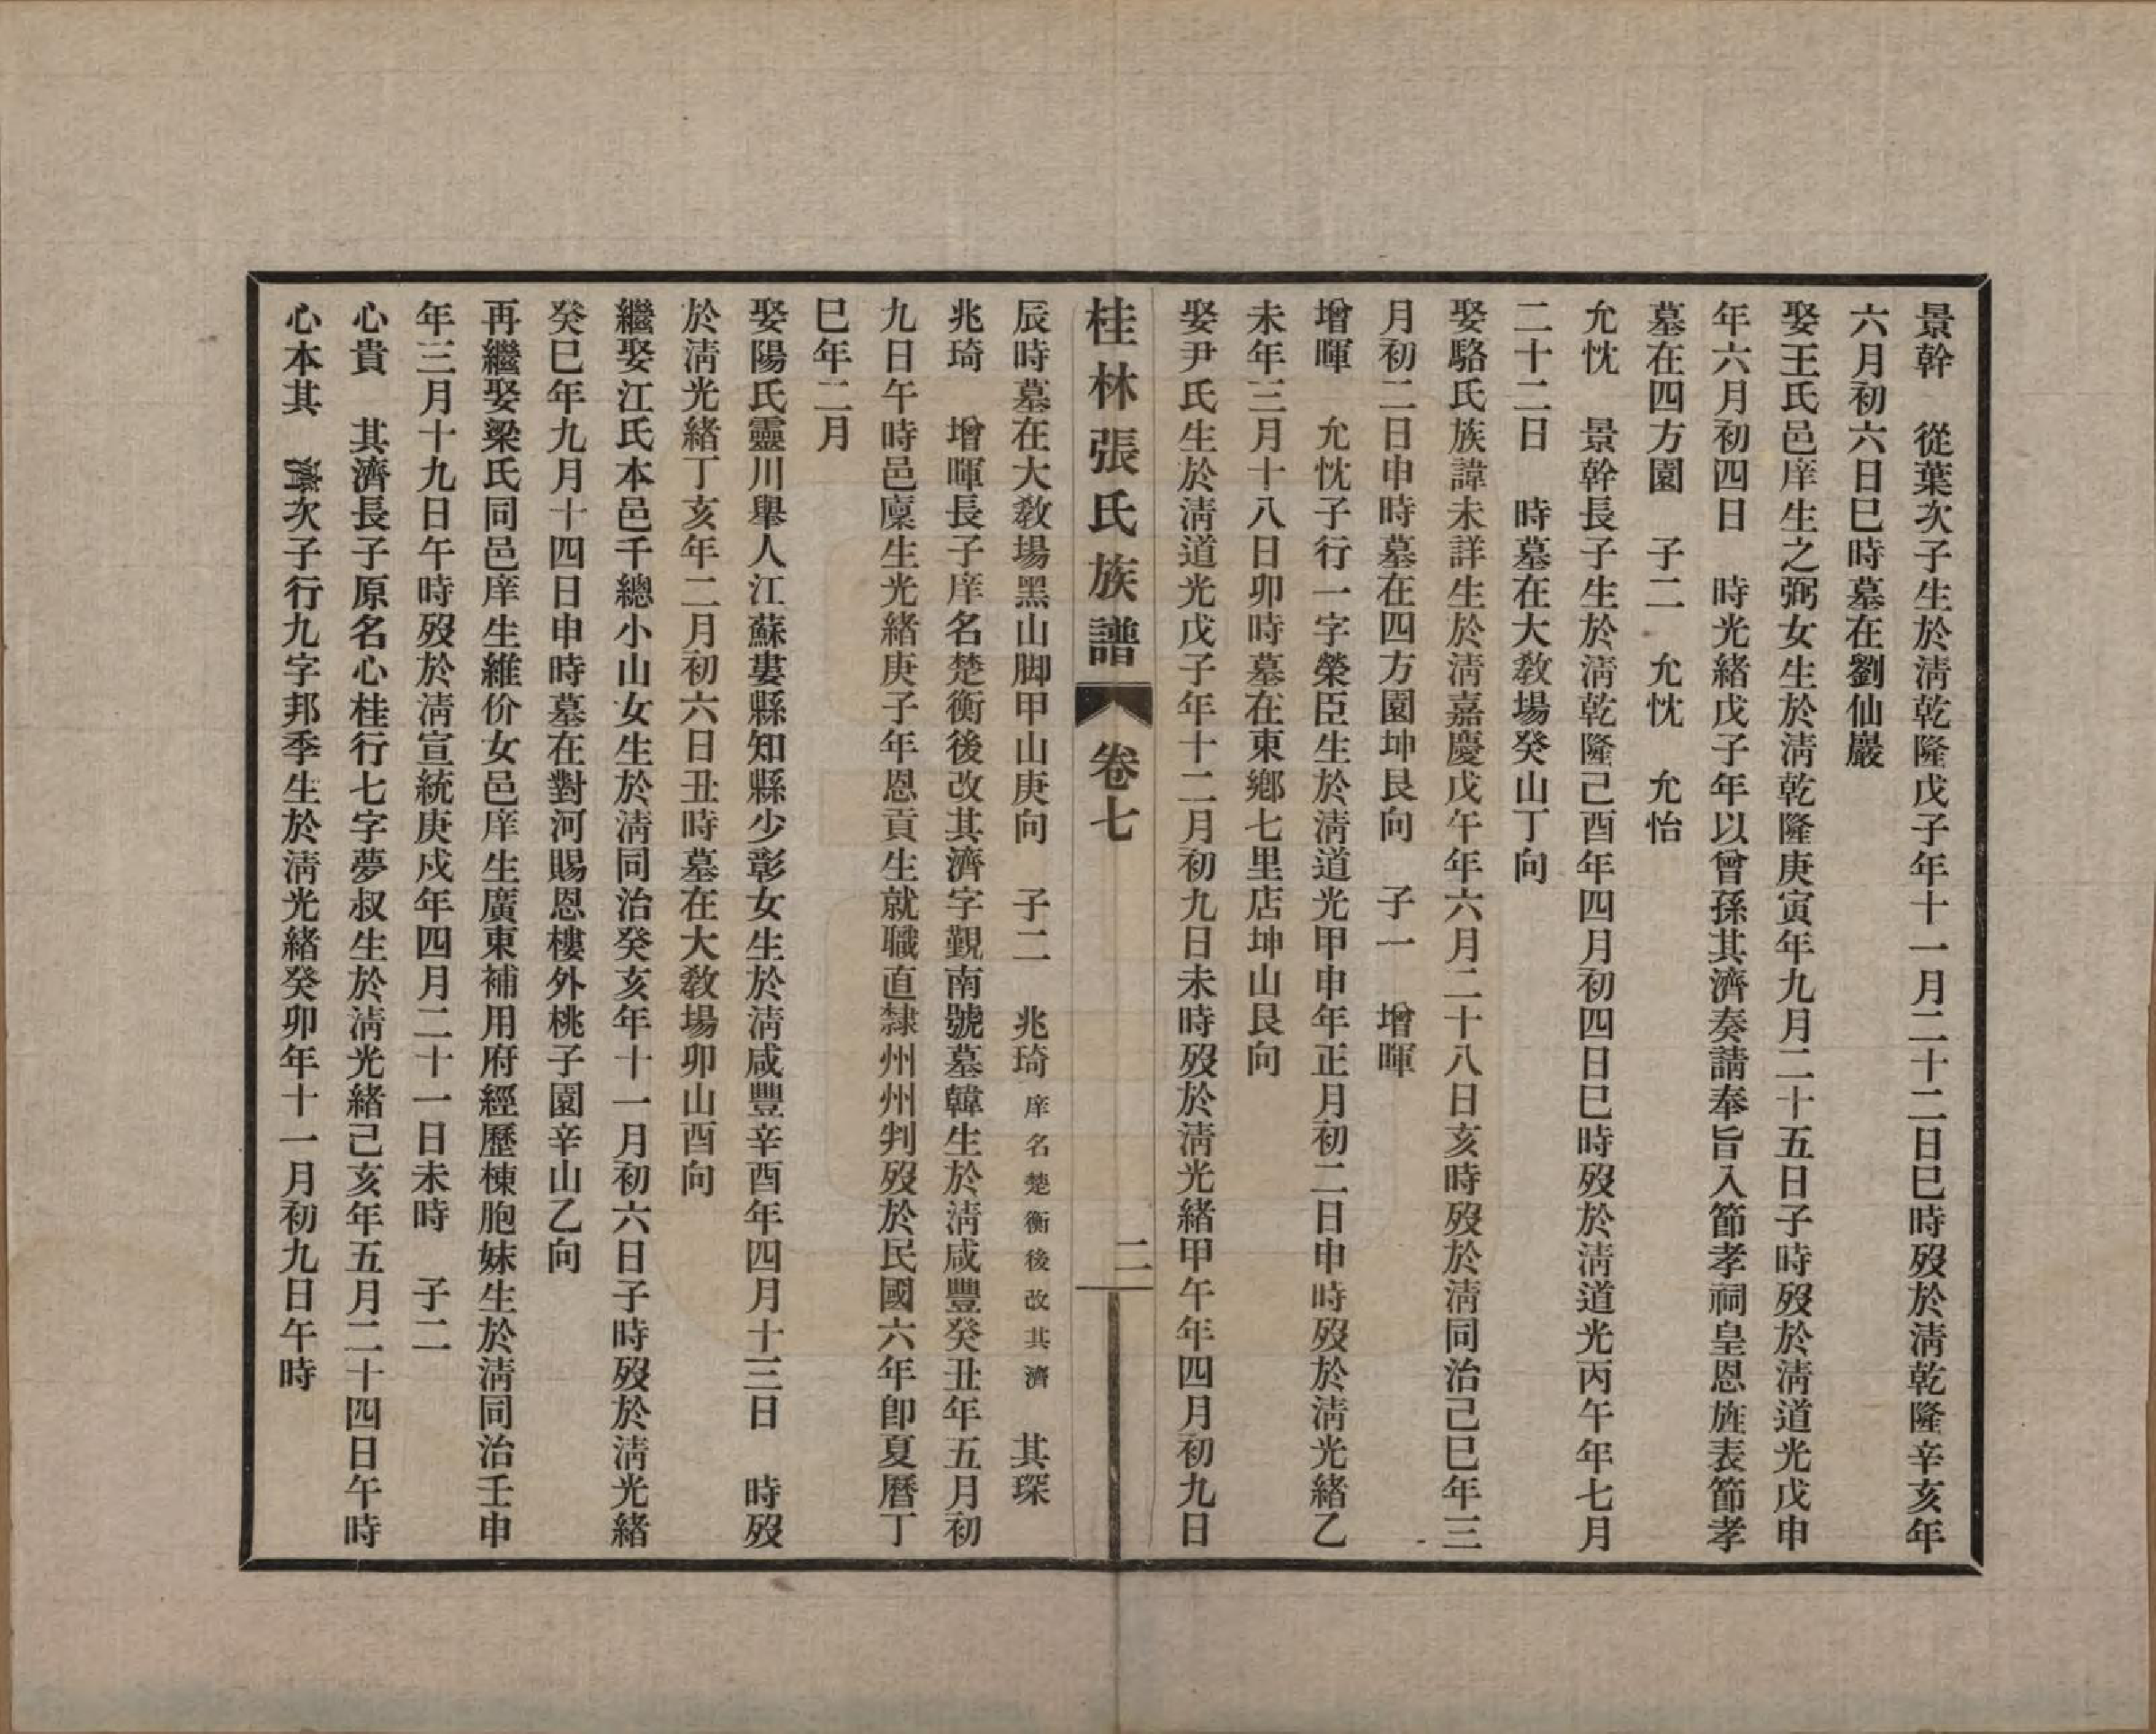 景幹　從葉次子生於淸乾隆戊子年十一月二十二日巳時歿於淸乾隆辛亥年
六月初六日巳時墓在劉仙巖
娶王氏邑庠生之弼女生於淸乾隆庚寅年九月二十五日子時歿於淸道光戊申
年六月初四日　時光緒戊子年以曾孫其濟奏請奉旨入節孝祠皇恩旌表節孝
墓在四方園　子二　允忱　允怡
允忱　景幹長子生於淸乾隆己酉年四月初四日巳時歿於淸道光丙午年七月
二十二日　時墓在大敎場癸山丁向
娶駱氏族諱未詳生於淸嘉慶戊午年六月二十八日亥時歿於淸同治己巳年三
月初二日申時墓在四方園坤艮向　子一　增暉
增暉　允忱子行一字榮臣生於淸道光甲申年正月初二日申時歿於淸光緒乙
未年三月十八日卯時墓在東鄉七里店坤山艮向
娶尹氏生於淸道光戊子年十二月初九日未時歿於淸光緒甲午年四月初九日
桂林張氏族譜　卷七　二
辰時墓在大敎場黑山脚甲山庚向　子二　兆琦庠名楚衡後改其濟　其琛
兆琦　增暉長子庠名楚衡後改其濟字覲南號墓韓生於淸咸豐癸丑年五月初
九日午時邑廩生光緒庚子年恩貢生就職直隸州州判歿於民國六年卽夏曆丁
巳年二月
娶陽氏靈川舉人江蘇婁縣知縣少彰女生於淸咸豐辛酉年四月十三日　時歿
於淸光緒丁亥年二月初六日丑時墓在大敎場卯山酉向
繼娶江氏本邑千總小山女生於淸同治癸亥年十一月初六日子時歿於淸光緒
癸巳年九月十四日申時墓在對河賜恩樓外桃子園辛山乙向
再繼娶梁氏同邑庠生維价女邑庠生廣東補用府經歷棟胞妹生於淸同治壬申
年三月十九日午時歿於淸宣統庚戍年四月二十一日未時　子二
心貴　其濟長子原名心桂行七字夢叔生於淸光緒己亥年五月二十四日午時
心本其　濟次子行九字邦季生於淸光緒癸卯年十一月初九日午時